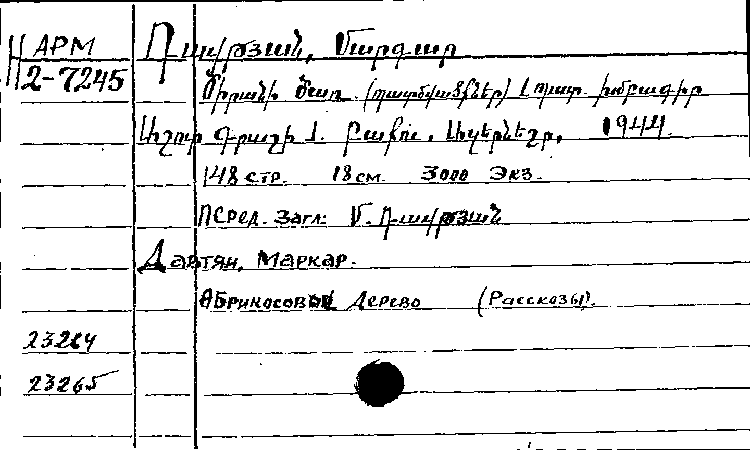 АРМ
2-7245
Դավթյան, Մարգար
Ծիրանի ծառ. (պատմվածքներ)
Բաքու, Ազերնեշր, 1944.
148 стр. 18 см. 3000 экз.
Перед. загл: Մ. Դավթյան
Давтян, Маркар.
Абрикосовое дерево (Рассказы).
23264
23265